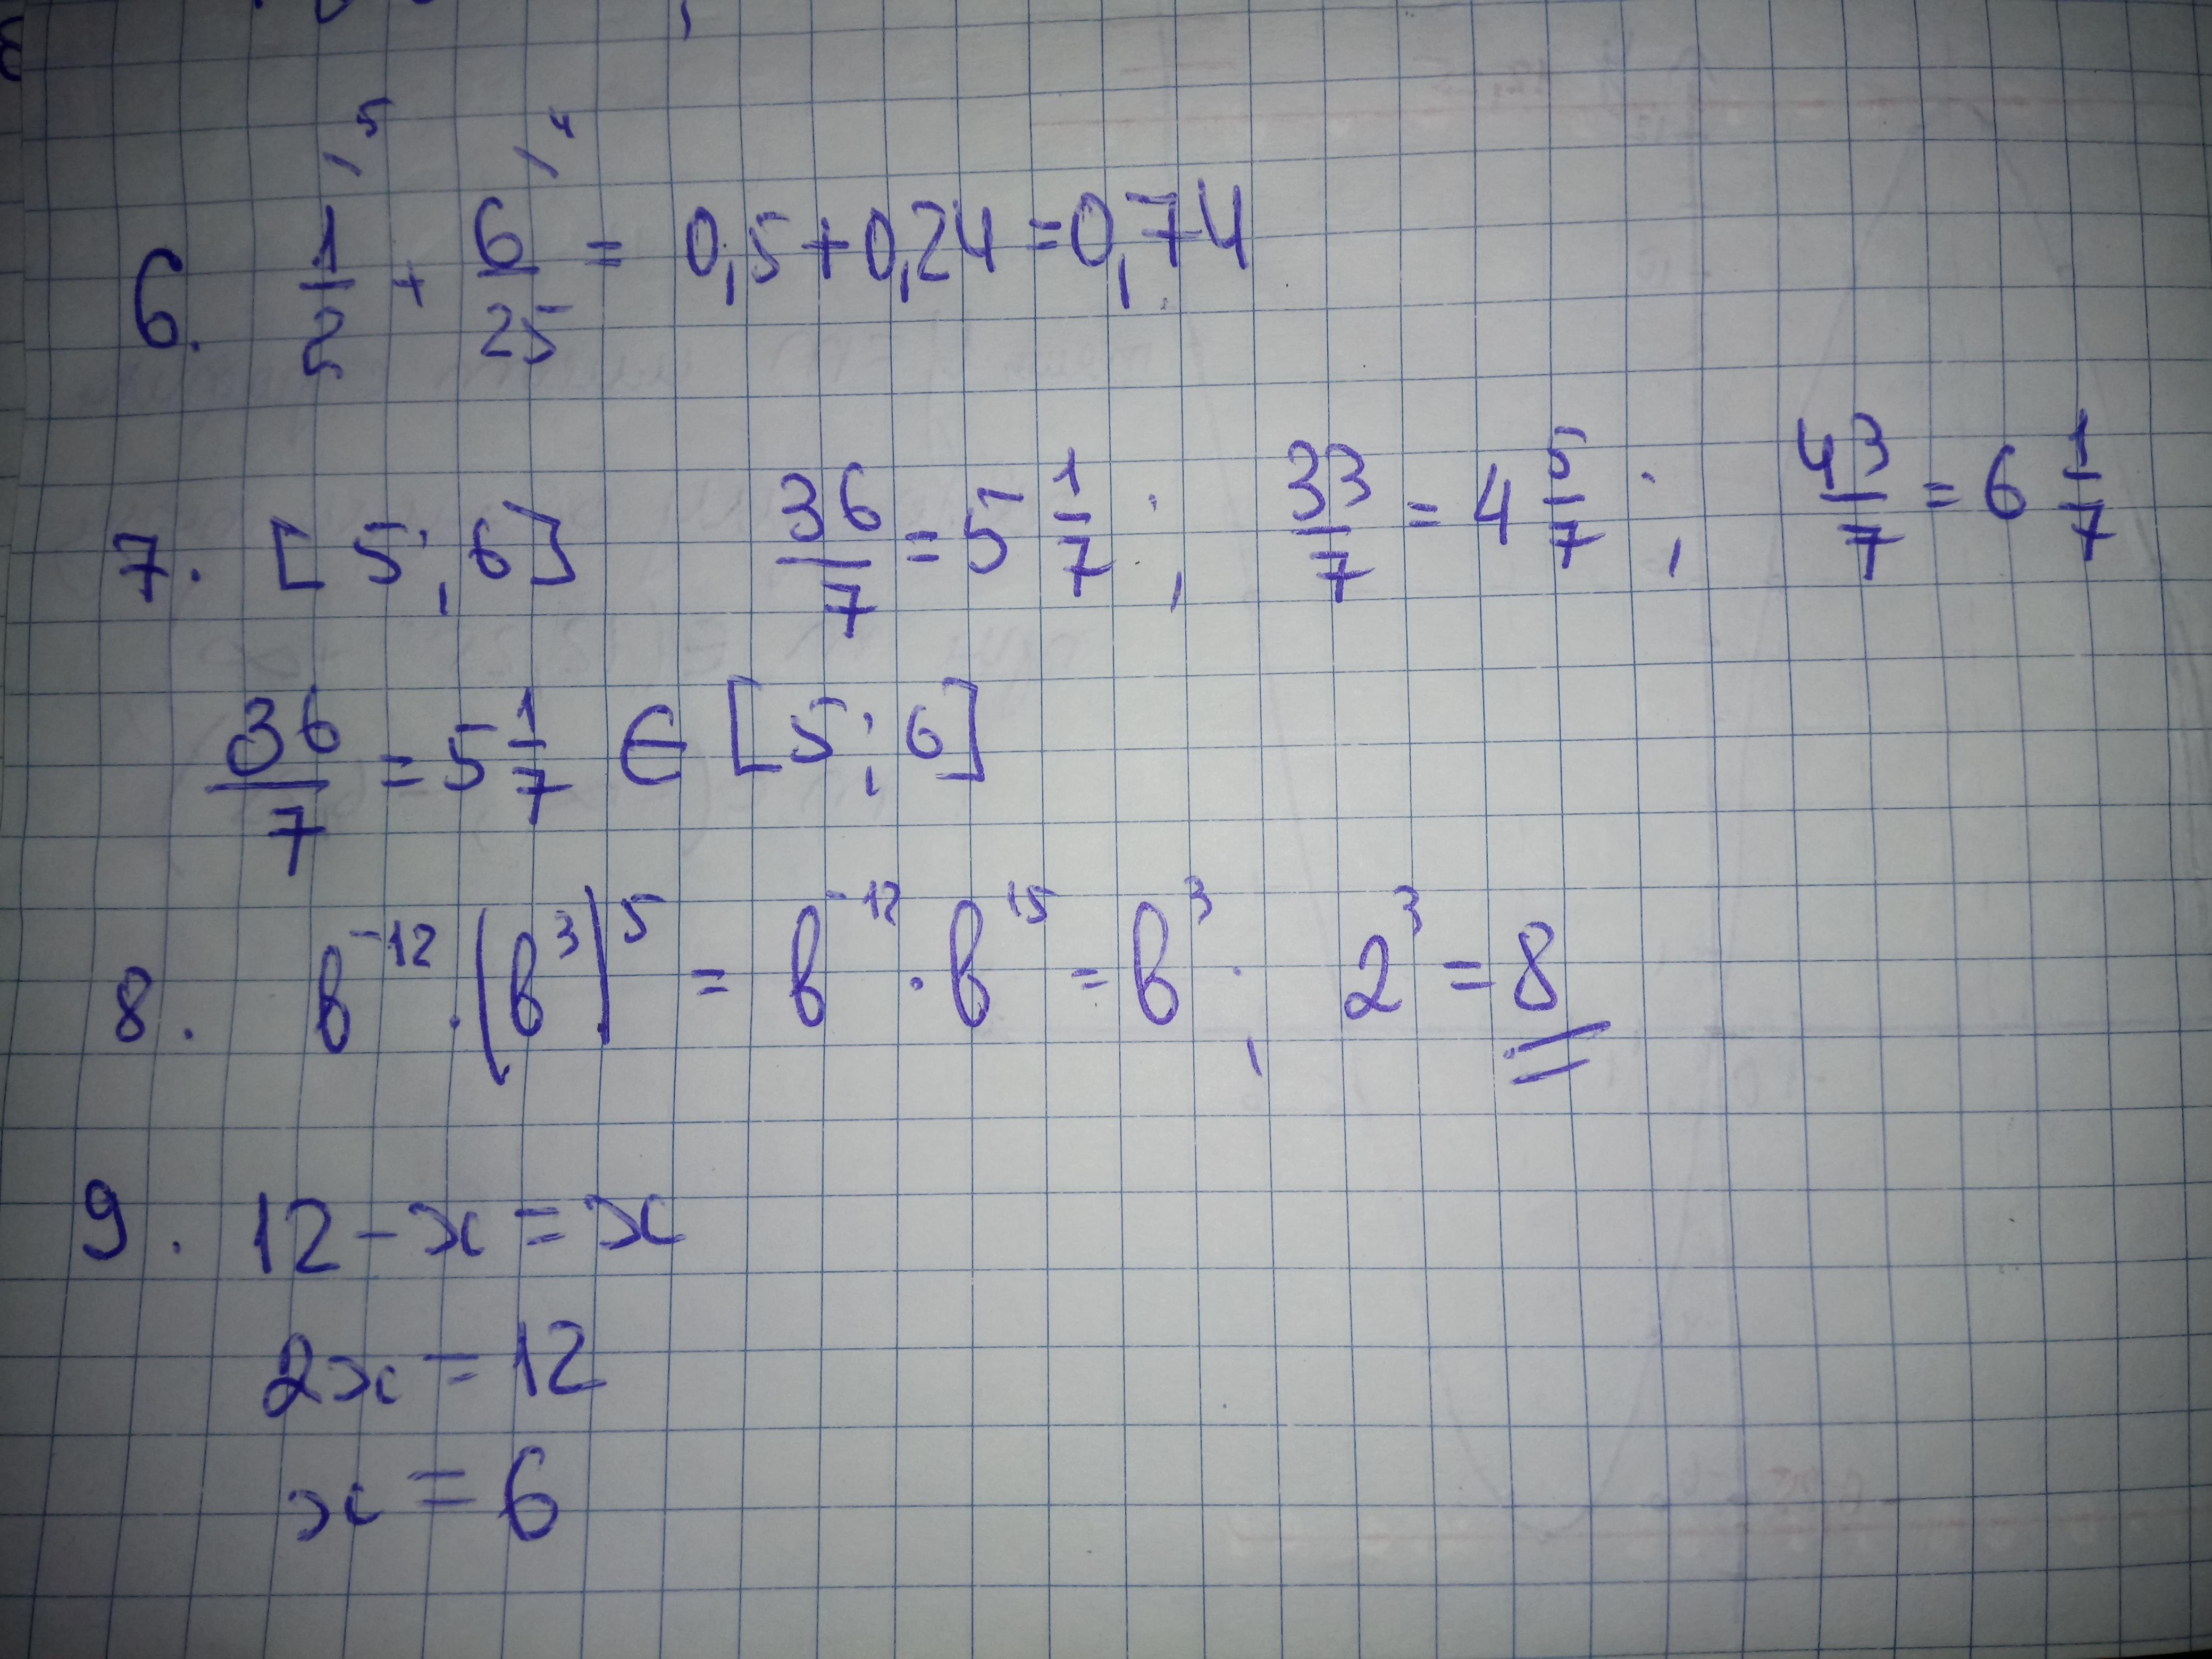 5 4
6. 1/2 + 6/25 = 0,5+0,24=0,74
7. [5;6] 36/7 = 5 1/7; 33/7 = 4 5/7; 43/7 = 6 1/7
36/7 = 5 1/7 ∈ [5;6]
8. в⁻¹² · (в³)⁵ = в⁻¹² · в¹⁵ = в³; 2³ = 8
9. 12 - x = x
2x = 12
x = 6